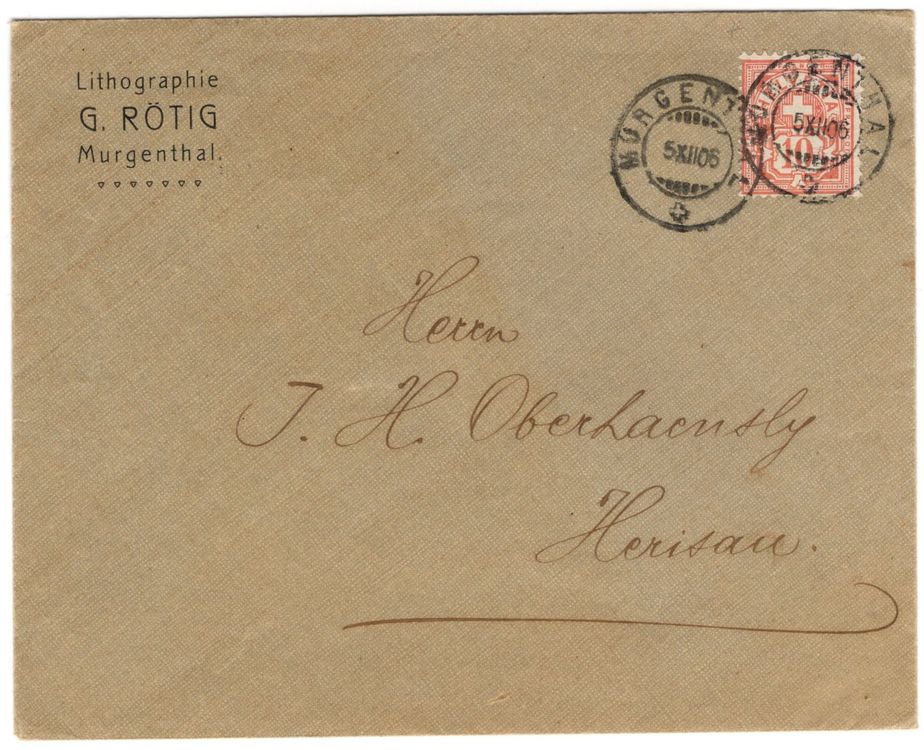 Lithographie
G. RÖTIG
Murgenthal.
MURGENT
5XII06
MURGENTHAL
5XII06
10
Herrn
J. H. Oberhaensly
Herisau.